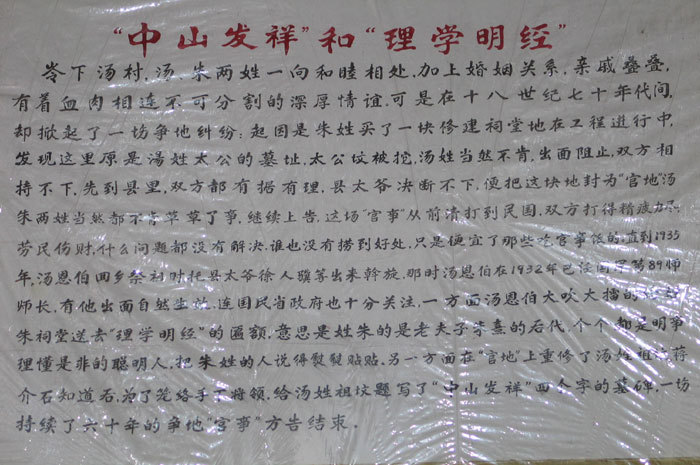 “中山发祥”和“理学明经”
岺下汤村，汤、朱两姓一向和睦相处，加上婚姻关系，亲戚叠叠，
有着血肉相连不可分割的深厚情谊，可是在十八世纪七十年代间，
却掀起了一场争地纠纷：起因是朱姓买了一块修建祠堂地在工程进行中，
发现这里原是湯姓太公的墓址，太公坟被挖，汤姓当然不肯，出面阻止，双方相
持不下，先到县里，双方都有据有理，县太爷决断不下，便把这块地封为“官地”汤
朱两姓当然都不肯草草了事，继续上告，这场“官事”从前清打到民国，双方打得精疲力尽，
劳民伤财，什么问题都没有解决，谁也没有捞到好处，只是便宜了那些吃官事饭的，直到1935
年，汤恩伯回乡祭祖时托县太爷徐人骥等出来斡旋，那时汤恩伯在1932年已任国军第89师
师长，有他出面自然生效，连国民省政府也十分关注，一方面汤恩伯大吹大擂的
朱祠堂送去“理学明经”的匾额，意思是姓朱的是老夫子朱熹的后代，个个都是明事
理懂是非的聪明人，把朱姓的人说得熨熨贴贴，另一方面在“官地”上重修了汤姓祖坟，蒋
介石知道后，为了笼络手下将领，给汤姓祖坟题写了“中山发祥”四个字的墓碑，一场
持续了六十年的争地“官事”方告结束．